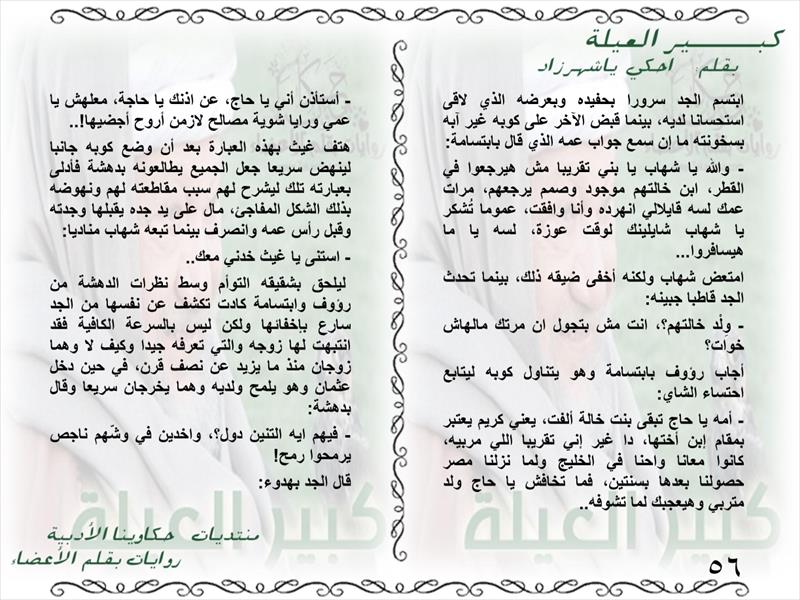 كبـــــــير العيلة
بقلم   احكي ياشهرزاد
ابتسم الجد سرورا بحفيده وبعرضه الذي لاقى
استحسانا لديه، بينما قبض الآخر على كوبه غير آبه
بسخونته ما إن سمع جواب عمه الذي قال بابتسامة:
- والله يا شهاب يا بني تقريبا مش هيرجعوا في
القطر، ابن خالتهم موجود وصمم يرجعهم، مرات
عمك لسه قايلالي انهرده وأنا وافقت، عموما تُشكر
يا شهاب شايلينك لوقت عوزة، لسه يا ما
هيسافروا...
امتعض شهاب ولكنه أخفى ضيقه ذلك، بينما تحدث
الجد قاطبا جبينه:
- ولْد خالتهم؟، انت مش بتجول ان مرتك مالهاش
خوات؟
أجاب رؤوف بابتسامة وهو يتناول كوبه ليتابع
احتساء الشاي:
- أمه يا حاج تبقى بنت خالة ألفت، يعني كريم يعتبر
بمقام إبن أختها، دا غير إني تقريبا اللي مربيه،
كانوا معانا واحنا في الخليج ولما نزلنا مصر
حصولنا بعدها بسنتين، فما تخافش يا حاج ولد
متربي وهيعجبك لما تشوفه..
- أستاذن أني يا حاج، عن اذنك يا حاجة، معلهش يا
عمي ورايا شوية مصالح لازمن أروح أجضيها!..
هتف غيث بهذه العبارة بعد أن وضع كوبه جانبا
لينهض سريعا جعل الجميع يطالعونه بدهشة فأدلى
بعبارته تلك ليشرح لهم سبب مقاطعته لهم ونهوضه
بذلك الشكل المفاجئ، مال على يد جده يقبلها وجدته
وقبل رأس عمه وانصرف بينما تبعه شهاب مناديا:
- استنى يا غيث خدني معك..
ليلحق بشقيقه التوأم وسط نظرات الدهشة من
رؤوف وابتسامة كادت تكشف عن نفسها من الجد
سارع بإخفائها ولكن ليس بالسرعة الكافية فقد
انتبهت لها زوجه والتي تعرفه جيدا وكيف لا وهما
زوجان منذ ما يزيد عن نصف قرن، في حين دخل
عثمان وهو يلمح ولديه وهما يخرجان سريعا وقال
بدهشة:
- فيهم ايه التنين دول؟، واخدين في وشّهم ناجص
يرمحوا رمح!
قال الجد بهدوء:
كبير العيلة
كبير العيلة
منتديات حكاوينا الأدبية
روايات بقلم الأعضاء
٥٦